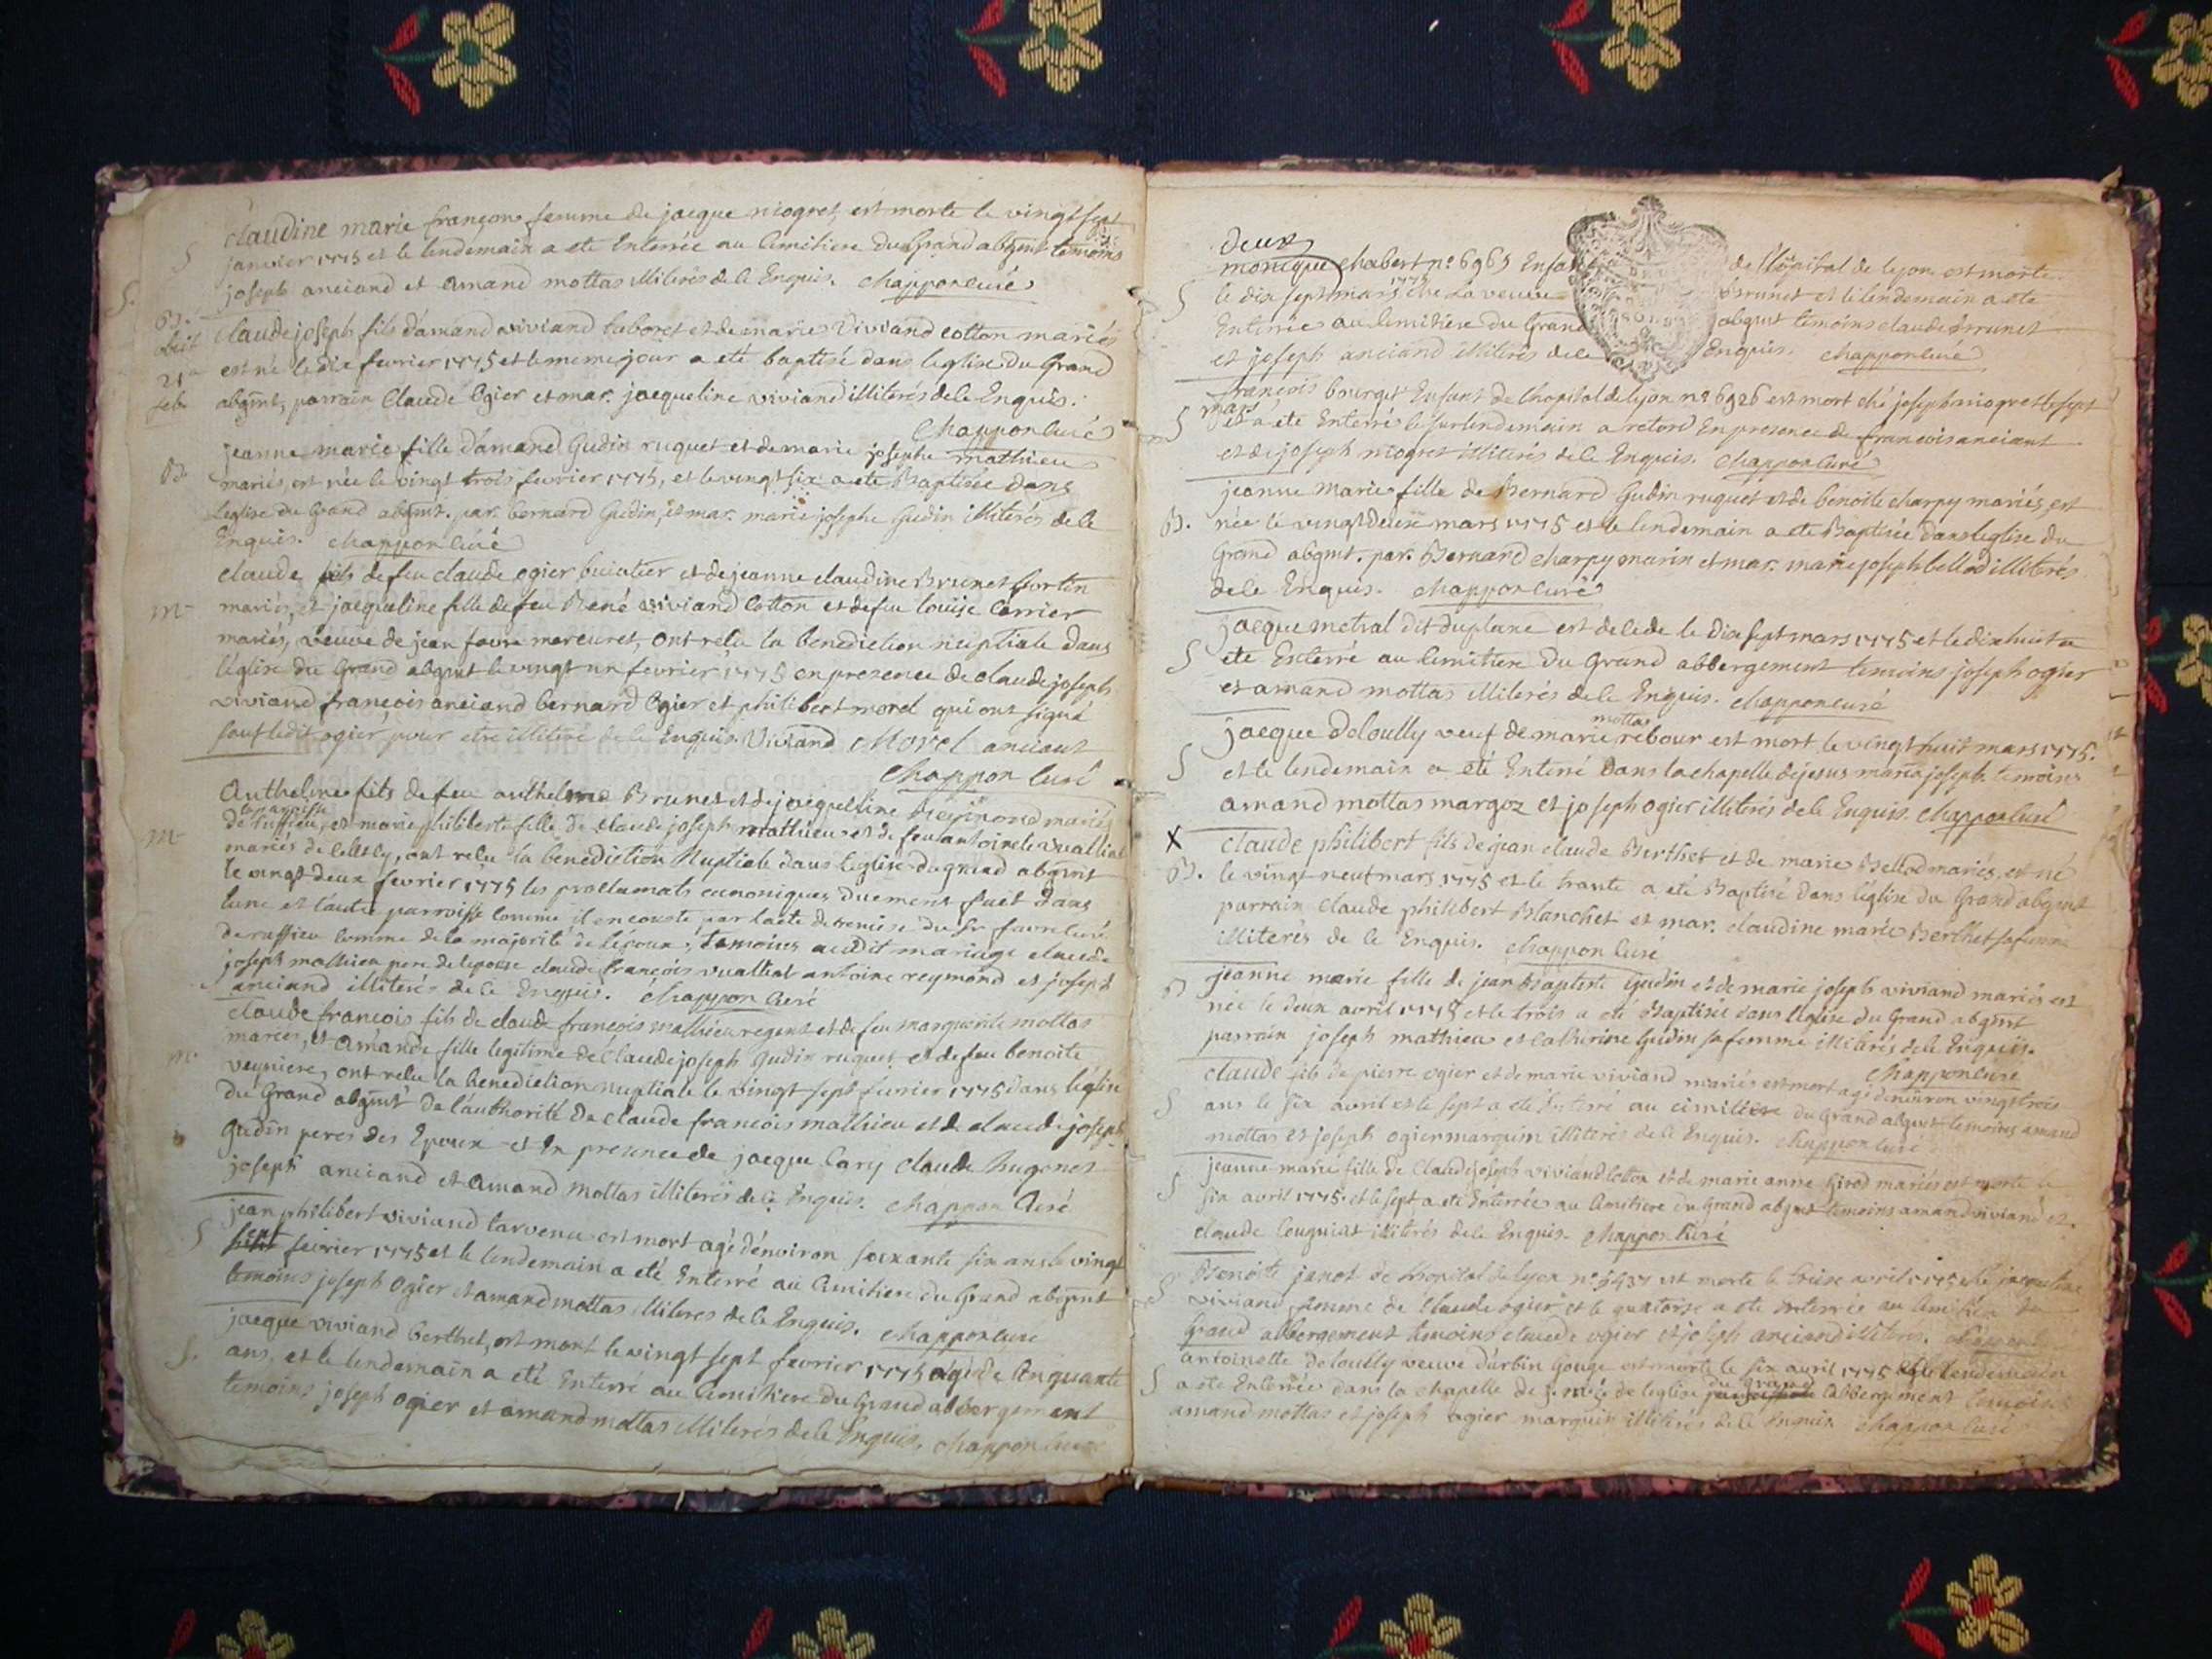 claudine marie françon femme de jacque niogret est morte le vingt sept
S janvier 1775 et le lendemain a ete Enterrée au Cimitiere du Grand abgmt temoins
joseph anciand et amand mottas illiterés de le Enquis. Chappon curé
B. claude joseph fils d'amand viviand taboret et de marie viviand cotton mariés
obiit est né le dix fevrier 1775 et le meme jour a eté baptisé dans leglise du Grand
21a feb. abgmt, parrain Claude Ogier et mar. jacqueline viviand illiterés de le Enquis.
Chappon curé
jeanne marie fille d'amand Gudin ruquet et de marie josephe mathieu
B. mariés, est née le vingt trois fevrier 1775, et le vingt six a ete Baptisée dans
leglise du Grand abgmt. par. bernard Gudin, et mar. marie josephe Gudin illiterés de le
Enquis. Chappon curé
claude fils de feu claude ogier et de jeanne claudine Brunet fortin
m. mariés, et jacqueline fille de feu René viviand Cotton et de feu louise Carrier
mariés, veuve de jean favre mercuret, ont recu la benediction nuptiale dans
léglise du Grand abgmt le vingt un fevrier 1775 en presence de claude joseph
viviand françois anciand bernard Ogier et philibert morel qui ont signé
sauf ledit ogier pour etre illiteré de le Enquis. Viviand Morel anciant
Chappon curé
Anthelme fils de feu anthelme Brunet et de jacqueline Reymond mariés
m. de Ruffieu, et marie philiberte fille de claude joseph mathieu et de feu antoinette vualliat
mariés de , ont recu la benediction Nuptiale dans leglise du grand abgmt
le vingt deux fevrier 1775 les proclamats canoniques duement fait dans
lune et lautre parroisse comme il en conste par lacte de remise du Sr favre curé
de ruffieu comme de la majorité de lépoux, temoins audit mariage claude
joseph mathieu pere de lepouse claude françois vualliat antoine reymond et joseph
anciand illiterés de le Enquis. Chappon curé
claude francois fils de claude françois mathieu regent et de feu marguerite mottas
m. mariés, et Amande fille legitime de Claude joseph Gudin ruquet et de feu benoite
veyniere, ont recu la benediction nuptiale le vingt sept fevrier 1775 dans léglise
du Grand abgmt de l'authorité de claude francois mathieu et de claude joseph
Gudin peres des Epoux et En presence de jacque Cary claude hugonet
joseph anciand et amand mottas illiterés de le Enquis. Chappon Curé
jean philibert viviand tarvenu est mort agé d'environ soixante six ans le vingt
S sept fevrier 1775 et le lendemain a eté Enterré au Cimitiere du Grand abgmt
temoins joseph Ogier et amand mottas illiteres de le Enquis. Chappon curé
jacque viviand berthet, est mort le vingt sept fevrier 1775 agé de Cinquante
S. ans, et le lendemain a eté Enterré au Cimitiere du Grand abbergement
temoins joseph Ogier et amand mottas illiterés de le Enquis. Chappon curé
deux
monique Chabert no 6965 Enfant de l'hôpital de lyon est morte
S le dix sept mars 1775 ché la veuve Brunet et le lendemain a ete
Enterrée au Cimitiere du Grand abgmt temoins claude Brunet
et joseph anciand illiterés de le Enquis. Chappon curé
françois bourget Enfant de l'hopital de lyon no 6926 est mort ché joseph niogret le sept
mars
S et a ete Enterré le surlendemain a retord En presence de francois anciant
et de joseph niogret illiterés de le Enquis. Chappon curé
jeanne marie fille de Bernard Gudin ruquet et de benoite charpy mariés, est
B. née le vingt deux mars 1775 et le lendemain a ete Baptisée dans leglise du
Grand abgmt. par. Bernard charpy marin et mar. marie joseph bellod illiterés
de le Enquis. Chappon curé
jacque metral dit duplane est decede le dix sept mars 1775 et le dix huit a
S ete Enterré au Cimitiere du Grand abbergement temoins joseph ogier
et amand mottas illiterés de le Enquis. Chappon curé
mottas
jacque deloully veuf de marie rebour est mort le vingt huit mars 1775.
S et le lendemain a eté Enterré dans la chapelle de jesus maria joseph temoins
amand mottas margoz et joseph ogier illiterés de le Enquis. Chappon curé
X claude philibert fils de jean claude Berthet et de marie Bellod mariés, est né
B. le vingt neuf mars 1775 et le trante a eté Baptisé dans l'église du Grand abgmt
parrain claude philibert Blanchet et mar. claudine marie Berthet sa femme
illiterés de le Enquis. Chappon curé
jeanne marie fille de jean Baptiste Gudin et de marie joseph viviand mariés est
B née le deux avril 1775 et le trois a eté Baptisée dans léglise du Grand abgmt
parrain joseph mathieu et Catherine Gudin sa femme illiterés de le Enquis.
Chappon curé
claude fils de pierre ogier et de marie viviand mariés est mort agé denviron vingt trois
S ans le six avril et le sept a eté Enterré au cimitiere du Grand abgmt temoins amand
mottas et joseph ogier marquin illiterés de le Enquis. Chappon curé
jeanne marie fille de Claude joseph viviand cotton et de marie anne Girod mariés est morte le
S six avril 1775 et le sept a eté Enterrée au Cimitiere du Grand abgmt temoins amand viviand et
claude Cougniat illiterés de le Enquis. Chappon curé
Benoite janot de l'hopital de lyon no 5437 est morte le treise avril 1775 ché jacqueline
S viviand femme de Claude ogier et le quatorse a ete enterrée au Cimitiere du
Grand abbergement temoins claude ogier et joseph anciand illiteres. Chappon curé
antoinette deloully veuve d'urbin Gouge est morte le six avril 1775 et le lendemain
du Grand
S a ete Enterrée dans la chapelle de de leglise Abbergement temoins
amand mottas et joseph ogier marquin illiterés de le Enquis Chappon curé